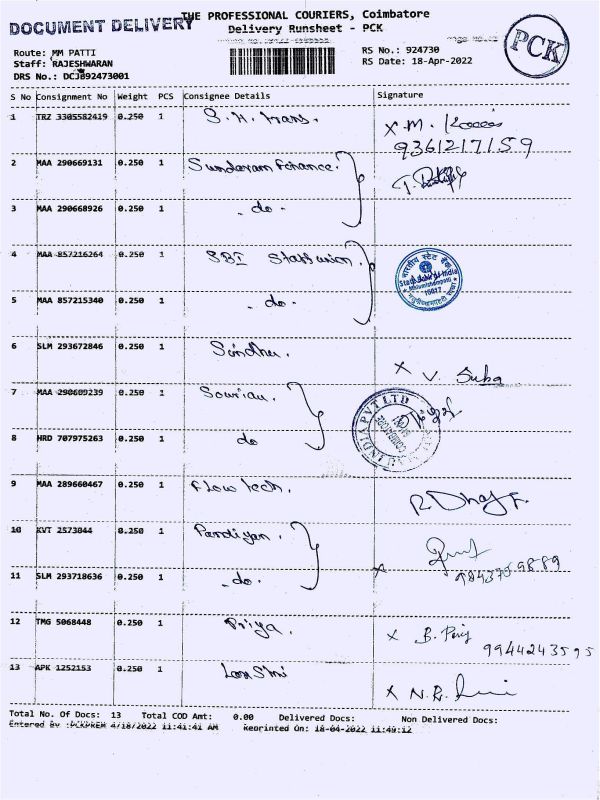 THE PROFESSIONAL COURIERS, Coimbatore
DOCUMENT DELIVERY
Delivery Runsheet - PCK
PCK
Route: MM PATTI
RS No.: 924730
Staff: RAJESHWARAN
RS Date: 18-Apr-2022
DRS No.: DCJ892473001
S No Consignment No Weight PCS Consignee Details Signature
1 TRZ 3305582419 0.250 1 S.N. trans. x M.
9361217159
2 MAA 290669131 0.250 1 Sundaram finance.
3 MAA 290668926 0.250 1 - do -
4 MAA 857216264 0.250 1 SBI Staff union.
भारतीय स्टेट बैंक
State Bank of India
5 MAA 857215340 0.250 1 - do -
6 SLM 293672846 0.250 1 Sindhu. x V. Suba
7 MAA 290609239 0.250 1 Souriau.
INDIA PVT LTD
COIMBATORE
8 HRD 707975263 0.250 1 do
9 MAA 289660467 0.250 1 Flow tech.
10 KVT 2573044 0.250 1 Pandiyan.
11 SLM 293718636 0.250 1 - do - x
12 TMG 5068448 0.250 1 Priya. x B.
9944243595
13 APK 1252153 0.250 1 x N.R.
Total No. Of Docs: 13 Total COD Amt: 0.00 Delivered Docs: Non Delivered Docs:
Entered By :PCKPREM 4/18/2022 11:41:41 AM Reprinted On: 18-04-2022 11:49:12